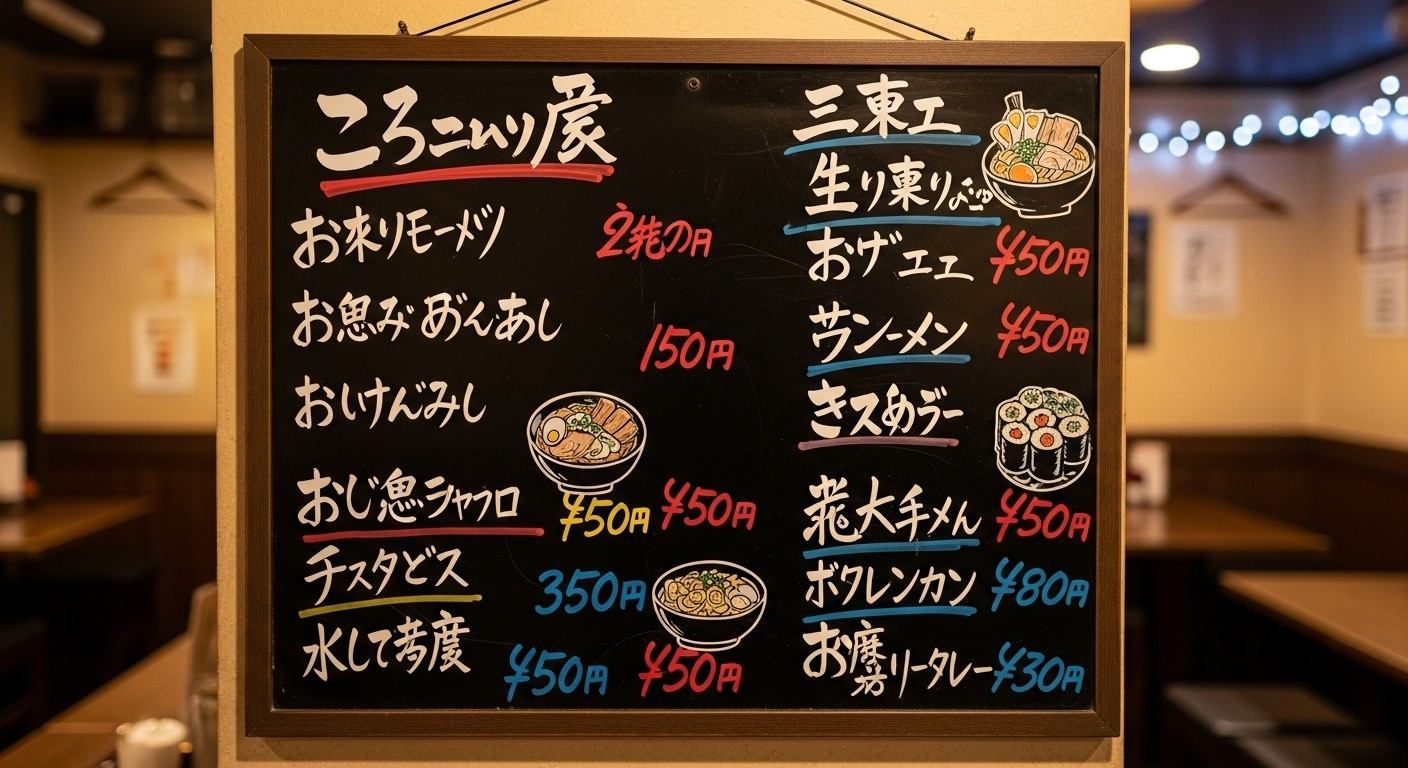 ころニムリ
お来りモーメツ
2 の円
お魚み めんあし
150円
おいけんみし
おじ魚シャフロ
¥50円 ¥50円
チスタどス
350円
水して 度
¥50円 ¥50円
三東工
生り東り
おゲエエ ¥50円
サンーメン ¥50円
きスめラー
大手メん ¥50円
ボクレンカン ¥80円
お リータレー ¥30円